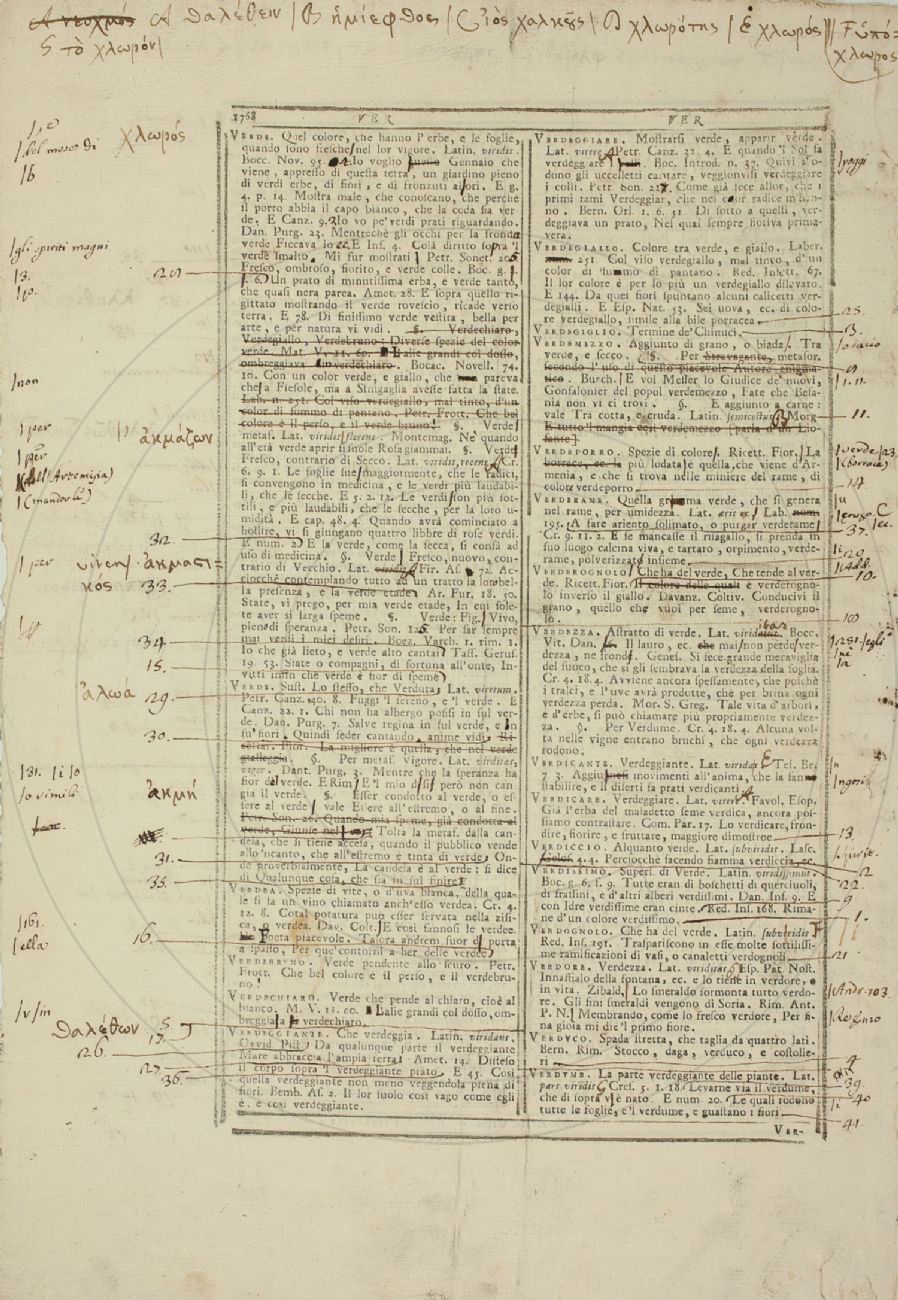 Α θαλέθειν | Β ἡμίεφθος | C ἰὸς χαλκοῦς | D χλωρότης | E χλωρός | F ὑπό=
G τὸ χλωρόν | χλωρος
χλωρός
1768 VER VER
VERDE. Quel colore, che hanno l'erbe, e le foglie,
quando sono fresche nel lor vigore. Latin. viridis.
Bocc. Nov. 95. Io voglio Gennaio che
viene, appresso di questa terra, un giardino pieno
di verdi erbe, di fiori, e di fronzuti E g.
4. p. 14. Mostra male, che conoscano, che perchè
il porro abbia il capo bianco, che la coda sia ver-
de. E Canz. 9. Io vo pe' verdi prati riguardando.
Dan. Purg. 23. Mentrechè gli occhi per la fronda
verde Ficcava Io ec. E Inf. 4. Colà diritto sopra 'l
verde smalto. Mi fur mostrati Petr. Sonet.
Fresco, ombroso, fiorito, e verde colle. Boc. g.
Un prato di minutissima erba, e verde tanto,
che quasi nera parea. Amet. 28. E sopra quello ri-
gittato mostrando il verde rovescio, ricade verso
terra. E 78. Di finissimo verde vestita, bella per
arte, e per natura vi vidi. §. Verdechiaro,
Verdegiallo, Verdebruno: Diverse spezie del color
verde. Mat. V. 11. 60. Balie grandi col dosso,
ombreggiava verdechiaro. Bocac. Novell. 74.
10. Con un color verde, e giallo, che pareva
che a Fiesole, ma a Sinigaglia avesse fatta la state.
Lab. n. 251. Col viso verdegiallo, mal tinto, d'un
color di fummo di pantano. Petr. Frott. Che bel
colore è il perso, e il verde bruno! §. Verde
metaf. Lat. viridis, florens. Montemag. Nè quando
all'età verde aprir si suole Rosa giammai. §. Verde
Fresco, contrario di Secco. Lat. viridis, recens. Cr.
6. 9. 1. Le foglie sue maggiormente, che le radici,
si convengono in medicina, e le verdi più laudabi-
li, che le secche. E 5. 2. 12. Le verdi son più sot-
tili, e più laudabili, che le secche, per la loro u-
midità. E cap. 48. 4. Quando avrà cominciato a
bollire, vi si giungano quattro libbre di rose verdi.
E num. 2. E la verde, come la secca, si confà ad
uso di medicina. §. Verde Fresco, nuovo, con-
trario di Vecchio. Lat. Fir. As. 72. Ac-
ciocchè contemplando tutto ad un tratto la lor bel-
la presenza, e la verde etade Ar. Fur. 18. 50.
State, vi prego, per mia verde etade, In cui sole-
te aver sì larga speme. §. Verde: Fig. Vivo,
pieno di speranza. Petr. Son. Per far sempre
mai verdi i miei desiri. Boez. Varch. 1. rim. 1.
Io che già lieto, e verde alto cantai Tass. Gerus.
19. 53. State o compagni, di fortuna all'onte, In-
vitti infin che verde è fior di speme
VERDE. Sust. Lo stesso, che Verdura. Lat. viretum.
Petr. Canz. 40. 8. Fuggi 'l sereno, e 'l verde. E
Canz. 22. 1. Chi non ha albergo posisi in sul ver-
de. Dan. Purg. 7. Salve regina in sul verde, e in
su' fiori. Quindi seder cantando anime vidi. Ri-
cettar. Fior. La migliore è quella, che nel verde
gialleggia §. Per metaf. Vigore. Lat. viriditas,
vigor. Dant. Purg. 3. Mentre che la speranza ha
fior del verde. E Rim. E 'l mio però non can
gia il verde. §. Esser condotto al verde, o es-
sere al verde vale Essere all'estremo, o al fine.
Petr. Son. 26. Quando mia speme, già condotta al
verde, Giunse nel Tolta la metaf. dalla can-
dela, che si tiene accesa, quando il pubblico vende
allo 'ncanto, che all'estremo è tinta di verde. On-
de proverbialmente, La candela è al verde: si dice
di Qualunque cosa, che sia in sul finire
VERDEA. Spezie di vite, o d'uva bianca, della qua-
le si fa un vino chiamato anch'esso verdea. Cr. 4.
12. 8. Cotal potatura può esser servata nella zisi-
ca, o verdea. Dav. Colt. E così fannosi le verdee.
Poeta piacevole. Talora andrem fuor di porta
a spasso, Per que' contorni a ber delle verdee
VERDEBRUNO. Verde pendente allo scuro. Petr.
Frott. Che bel colore è il perso, e il verdebru-
no!
VERDECHIARO. Verde che pende al chiaro, cioè al
bianco. M. V. 11. 60. Balie grandi col dosso, om-
breggiata verdechiaro.
VERDEGGIANTE. Che verdeggia. Latin. viridans.
Ovvid. Pist. Da qualunque parte il verdeggiante
Mare abbraccia l'ampia terra. Amet. 14. Disteso
il corpo sopra 'l verdeggiante prato. E 45. Così
quella verdeggiante non meno veggendola piena di
fiori. Bemb. As. 2. Il lor suolo così vago come egli
è, e così verdeggiante.
VERDEGGIARE. Mostrarsi verde, apparir verde.
Lat. virere. Petr. Canz. 32. 4. E quando 'l Sol fa
verdeggiare Boc. Introd. n. 37. Quivi s'o-
dono gli uccelletti cantare, veggionvisi verdeggiare
i colli. Petr. Son. Come già fece allor, che i
primi rami Verdeggiar, che nel cor radice m'han-
no. Bern. Orl. 1. 6. 51. Di sotto a questi, ver-
deggiava un prato, Nel qual sempre fioriva prima-
vera.
VERDEGIALLO. Colore tra verde, e giallo. Laber.
251. Col viso verdegiallo, mal tinto, d'un
color di fummo di pantano. Red. Insett. 67.
Il lor colore è per lo più un verdegiallo dilavato.
E 144. Da quei fiori spuntano alcuni calicetti ver-
degialli. E Esp. Nat. 53. Sei uova, ec. di colo-
re verdegiallo, simile alla bile porracea
VERDEGIGLIO. Termine de' Chimici,
VERDEMEZZO. Aggiunto di grano, o biada. Tra
verde, e secco. §. Per Stravagante, metafor.
secondo l'uso di questo piacevole Autore enigma-
tico. Burch. E voi Messer lo Giudice de' nuovi,
Gonfalonier del popol verdemezzo, Fate che Befa-
nia non vi ci trovi. §. E aggiunto a carne:
vale Tra cotta, e cruda. Latin. semicoctus. Morg.
E tutto 'l mangia così verdemezzo [parla d'un Lio-
fante]
VERDEPORRO. Spezie di colore. Ricett. Fior. La
borrace, ec. la più lodata è quella, che viene d'Ar-
menia, e che si trova nelle miniere del rame, di
color verdeporro
VERDERAME. Quella gruma verde, che si genera
nel rame, per umidezza. Lat. Lab. num.
195. A fare ariento solimato, o purgar verderame
Cr. 9. 11. 2. E se mancasse il risagallo, si prenda in
suo luogo calcina viva, e tartaro, orpimento, verde-
rame, polverizzato insieme
VERDEROGNOLO. Che ha del verde, Che tende al ver-
de. Ricett. Fior. Il colore delle quali è verderogno-
lo inverso il giallo. Davanz. Coltiv. Conducivi il
grano, quello che vuoi per seme, verderogno-
lo.
VERDEZZA. Astratto di verde. Lat. viriditas. Bocc.
Vit. Dan. Il lauro, ec. che mai non perde ver-
dezza, ne fronde. Genes. Si fece grande meraviglia
del fuoco, che sì gli sembrava la verdezza della foglia.
Cr. 4. 18. 4. Avviene ancora spessamente, che poichè
i tralci, e l'uve avrà prodotte, chè per brina ogni
verdezza perda. Mor. S. Greg. Tale vita d'arbori,
e d'erbe, si può chiamare più propriamente verdez-
za. §. Per Verdume. Cr. 4. 18. 4. Alcuna vol-
ta nelle vigne entrano bruchi, che ogni verdezza
rodono.
VERDICANTE. Verdeggiante. Lat. viridans. Tes. Br.
7 3. Aggiu movimenti all'anima, che la fanno
stabilire, e il diserti fa prati verdicanti
VERDICARE. Verdeggiare. Lat. virere. Favol. Esop.
Già l'erba del maladetto seme verdica, ancora pos-
siamo contrastare. Com. Par. 17. Lo verdicare, fron-
dire, fiorire, e fruttare, maggiore dimostroe.
VERDICCIO. Alquanto verde. Lat. subviridis. Lasc.
Gelos. 4. 4. Perciocchè facendo fiamma verdiccia, ec.
VERDISSIMO. Superl. di Verde. Latin. viridissimus.
Boc. g. 6. f. 9. Tutte eran di boschetti di querciuoli,
di frassini, e d'altri alberi verdissimi. Dan. Inf. 9. E
con Idre verdissime eran cinte. Red. Ins. 168. Rima-
ne d'un colore verdissimo
VERDOGNOLO. Che ha del verde. Latin. subviridis
Red. Ins. 191. Traspariscono in esse molte sottilissi-
me ramificazioni di vasi, o canaletti verdognoli
VERDORE. Verdezza. Lat. viriditas. Esp. Pat. Nost.
Innaffialo della fontana, ec. e lo tiene in verdore, e
in vita. Zibald. Lo smeraldo sormonta tutto verdo-
re. Gli fini smeraldi vengono di Soria. Rim. Ant.
P. N. Membrando, come lo fresco verdore, Per fi-
na gioia mi die 'l primo fiore.
VERDUCO. Spada stretta, che taglia da quattro lati.
Bern. Rim. Stocco, daga, verduco, e costolie-
re
VERDUME. La parte verdeggiante delle piante. Lat.
pars viridis. Cres. 5. 1. 18. Levarne via il verdume,
che di sopra v'è nato. E num. 20. Le quali rodono
tutte le foglie, e 'l verdume, e guastano i fiori
VER-
gli spiriti magni
non
per
ἀκμάζων
per
ἀκμαστι=
κός
32.
33.
34.
15.
ἀλωά
29.
30.
ἀκμή
31.
35.
16.
ella
θαλέθων
26.
27.
36.
25.
13.
9
11.
14
37.
10.
13
2
22.
9
1.
21
4
39.
40
41.